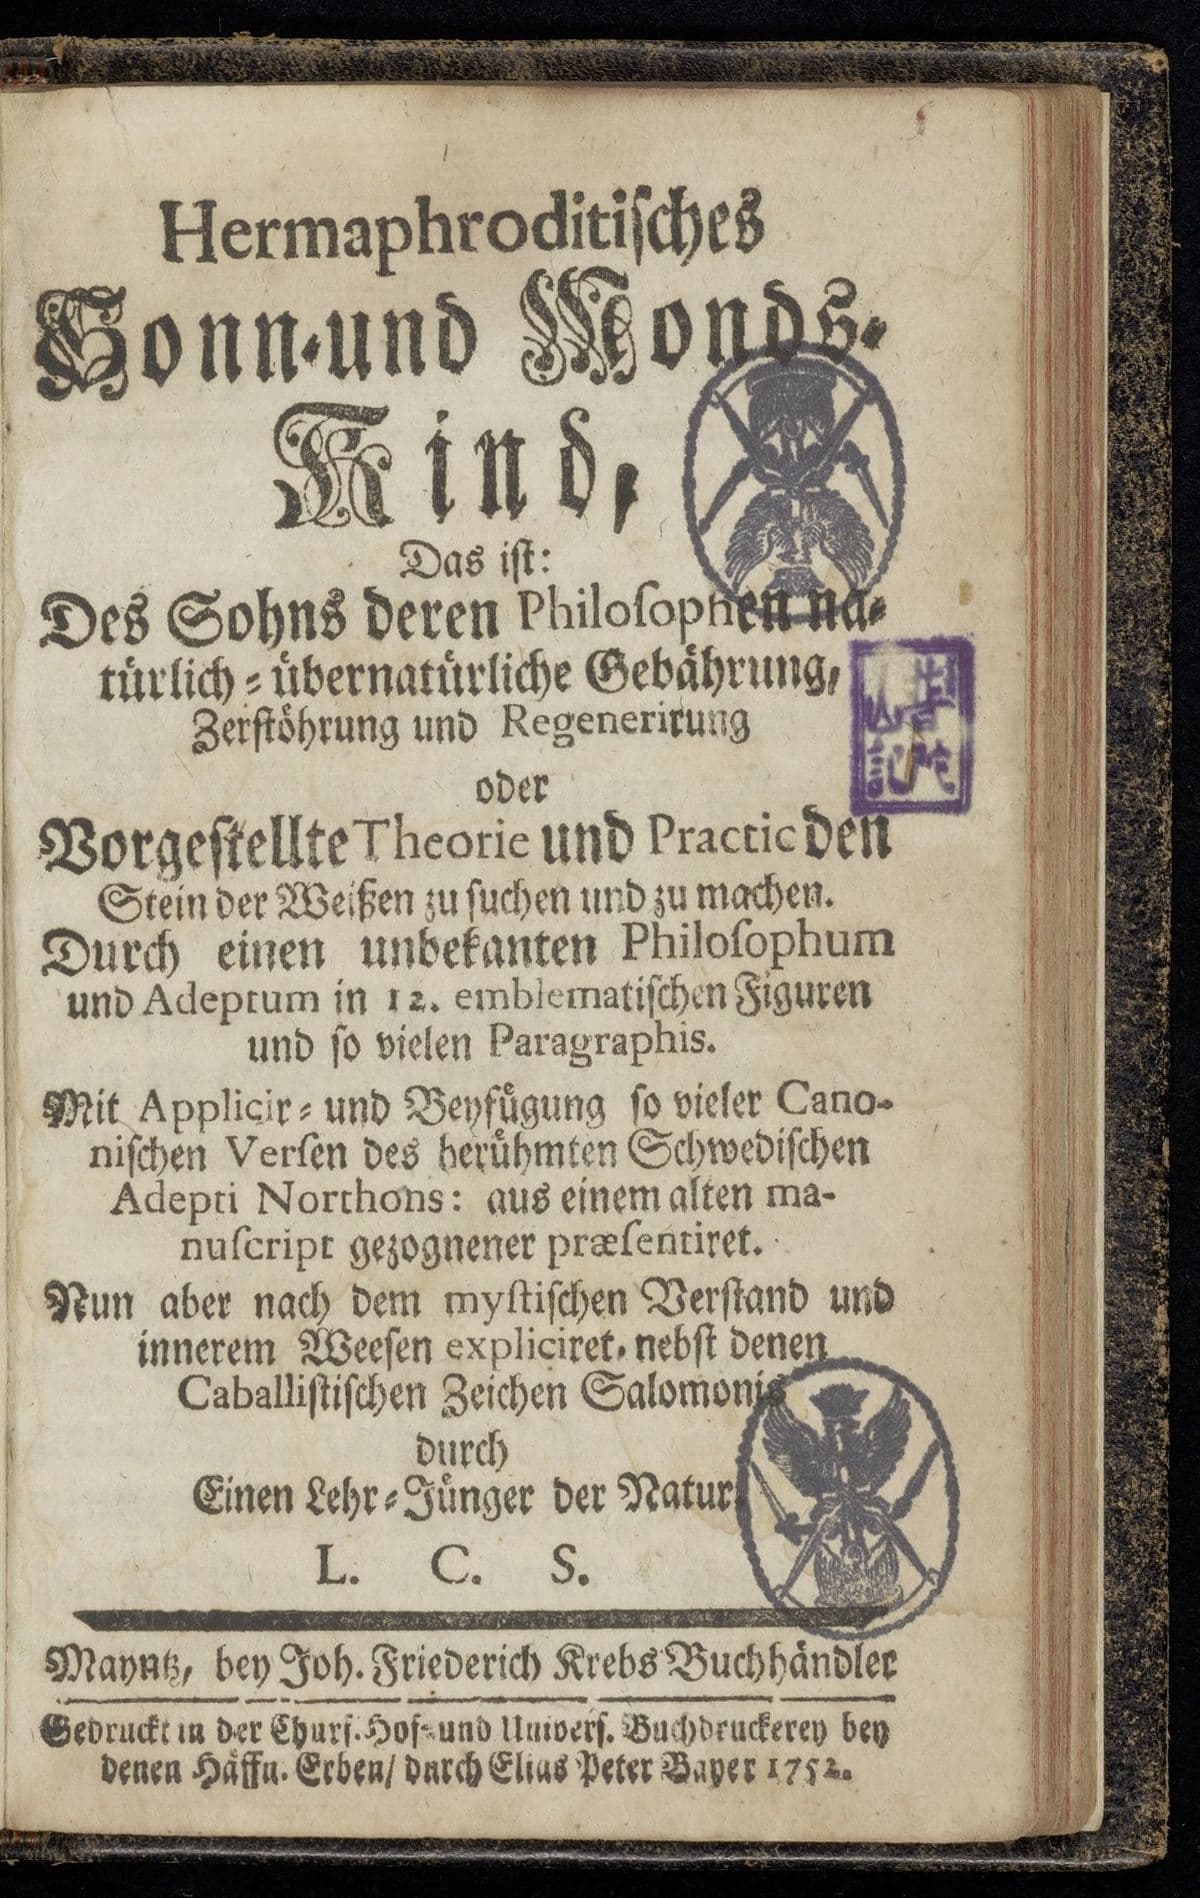 Hermaphroditiſches
Sonn-und Monds-
Kind,
Das iſt:
Des Sohns deren Philoſophen na-
türlich-übernatürliche Gebährung,
Zerſtöhrung und Regenerirung
oder
Vorgeſtellte Theorie und Practic den
Stein der Weißen zu ſuchen und zu machen.
Durch einen unbekanten Philoſophum
und Adeptum in 12. emblematiſchen Figuren
und ſo vielen Paragraphis.
Mit Applicir- und Beyfügung ſo vieler Cano-
niſchen Verſen des berühmten Schwediſchen
Adepti Northons: aus einem alten ma-
nuſcript gezognener præſentiret.
Nun aber nach dem myſtiſchen Verſtand und
innerem Weeſen expliciret, nebſt denen
Caballiſtiſchen Zeichen Salomonis
durch
Einen Lehr-Jünger der Natur
L. C. S.
Mayntz, bey Joh. Friederich Krebs Buchhändler
Gedruckt in der Churf. Hof- und Univers. Buchdruckerey bey
denen Häffn. Erben/ durch Elias Peter Bayer 1752.